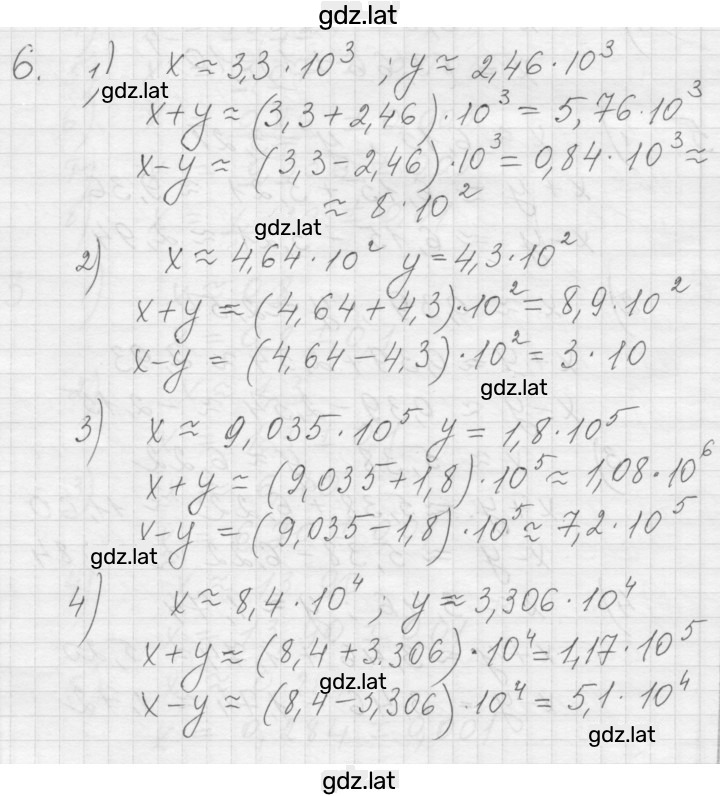 gdz.lat
6. 1) x ≈ 3,3 · 10³ ; y ≈ 2,46 · 10³
gdz.lat
x+y ≈ (3,3 + 2,46) · 10³ = 5,76 · 10³
x−y ≈ (3,3 − 2,46) · 10³ = 0,84 · 10³ ≈
≈ 8 · 10²
gdz.lat
2) x ≈ 4,64 · 10² y = 4,3 · 10²
x+y ≈ (4,64 + 4,3) · 10² = 8,9 · 10²
x−y = (4,64 − 4,3) · 10² = 3 · 10
gdz.lat
3) x ≈ 9,035 · 10⁵ y = 1,8 · 10⁵
x+y ≈ (9,035 + 1,8) · 10⁵ ≈ 1,08 · 10⁶
x−y = (9,035 − 1,8) · 10⁵ ≈ 7,2 · 10⁵
gdz.lat
4) x ≈ 8,4 · 10⁴ ; y ≈ 3,306 · 10⁴
x+y ≈ (8,4 + 3,306) · 10⁴ = 1,17 · 10⁵
gdz.lat
x−y ≈ (8,4 − 3,306) · 10⁴ = 5,1 · 10⁴
gdz.lat
gdz.lat